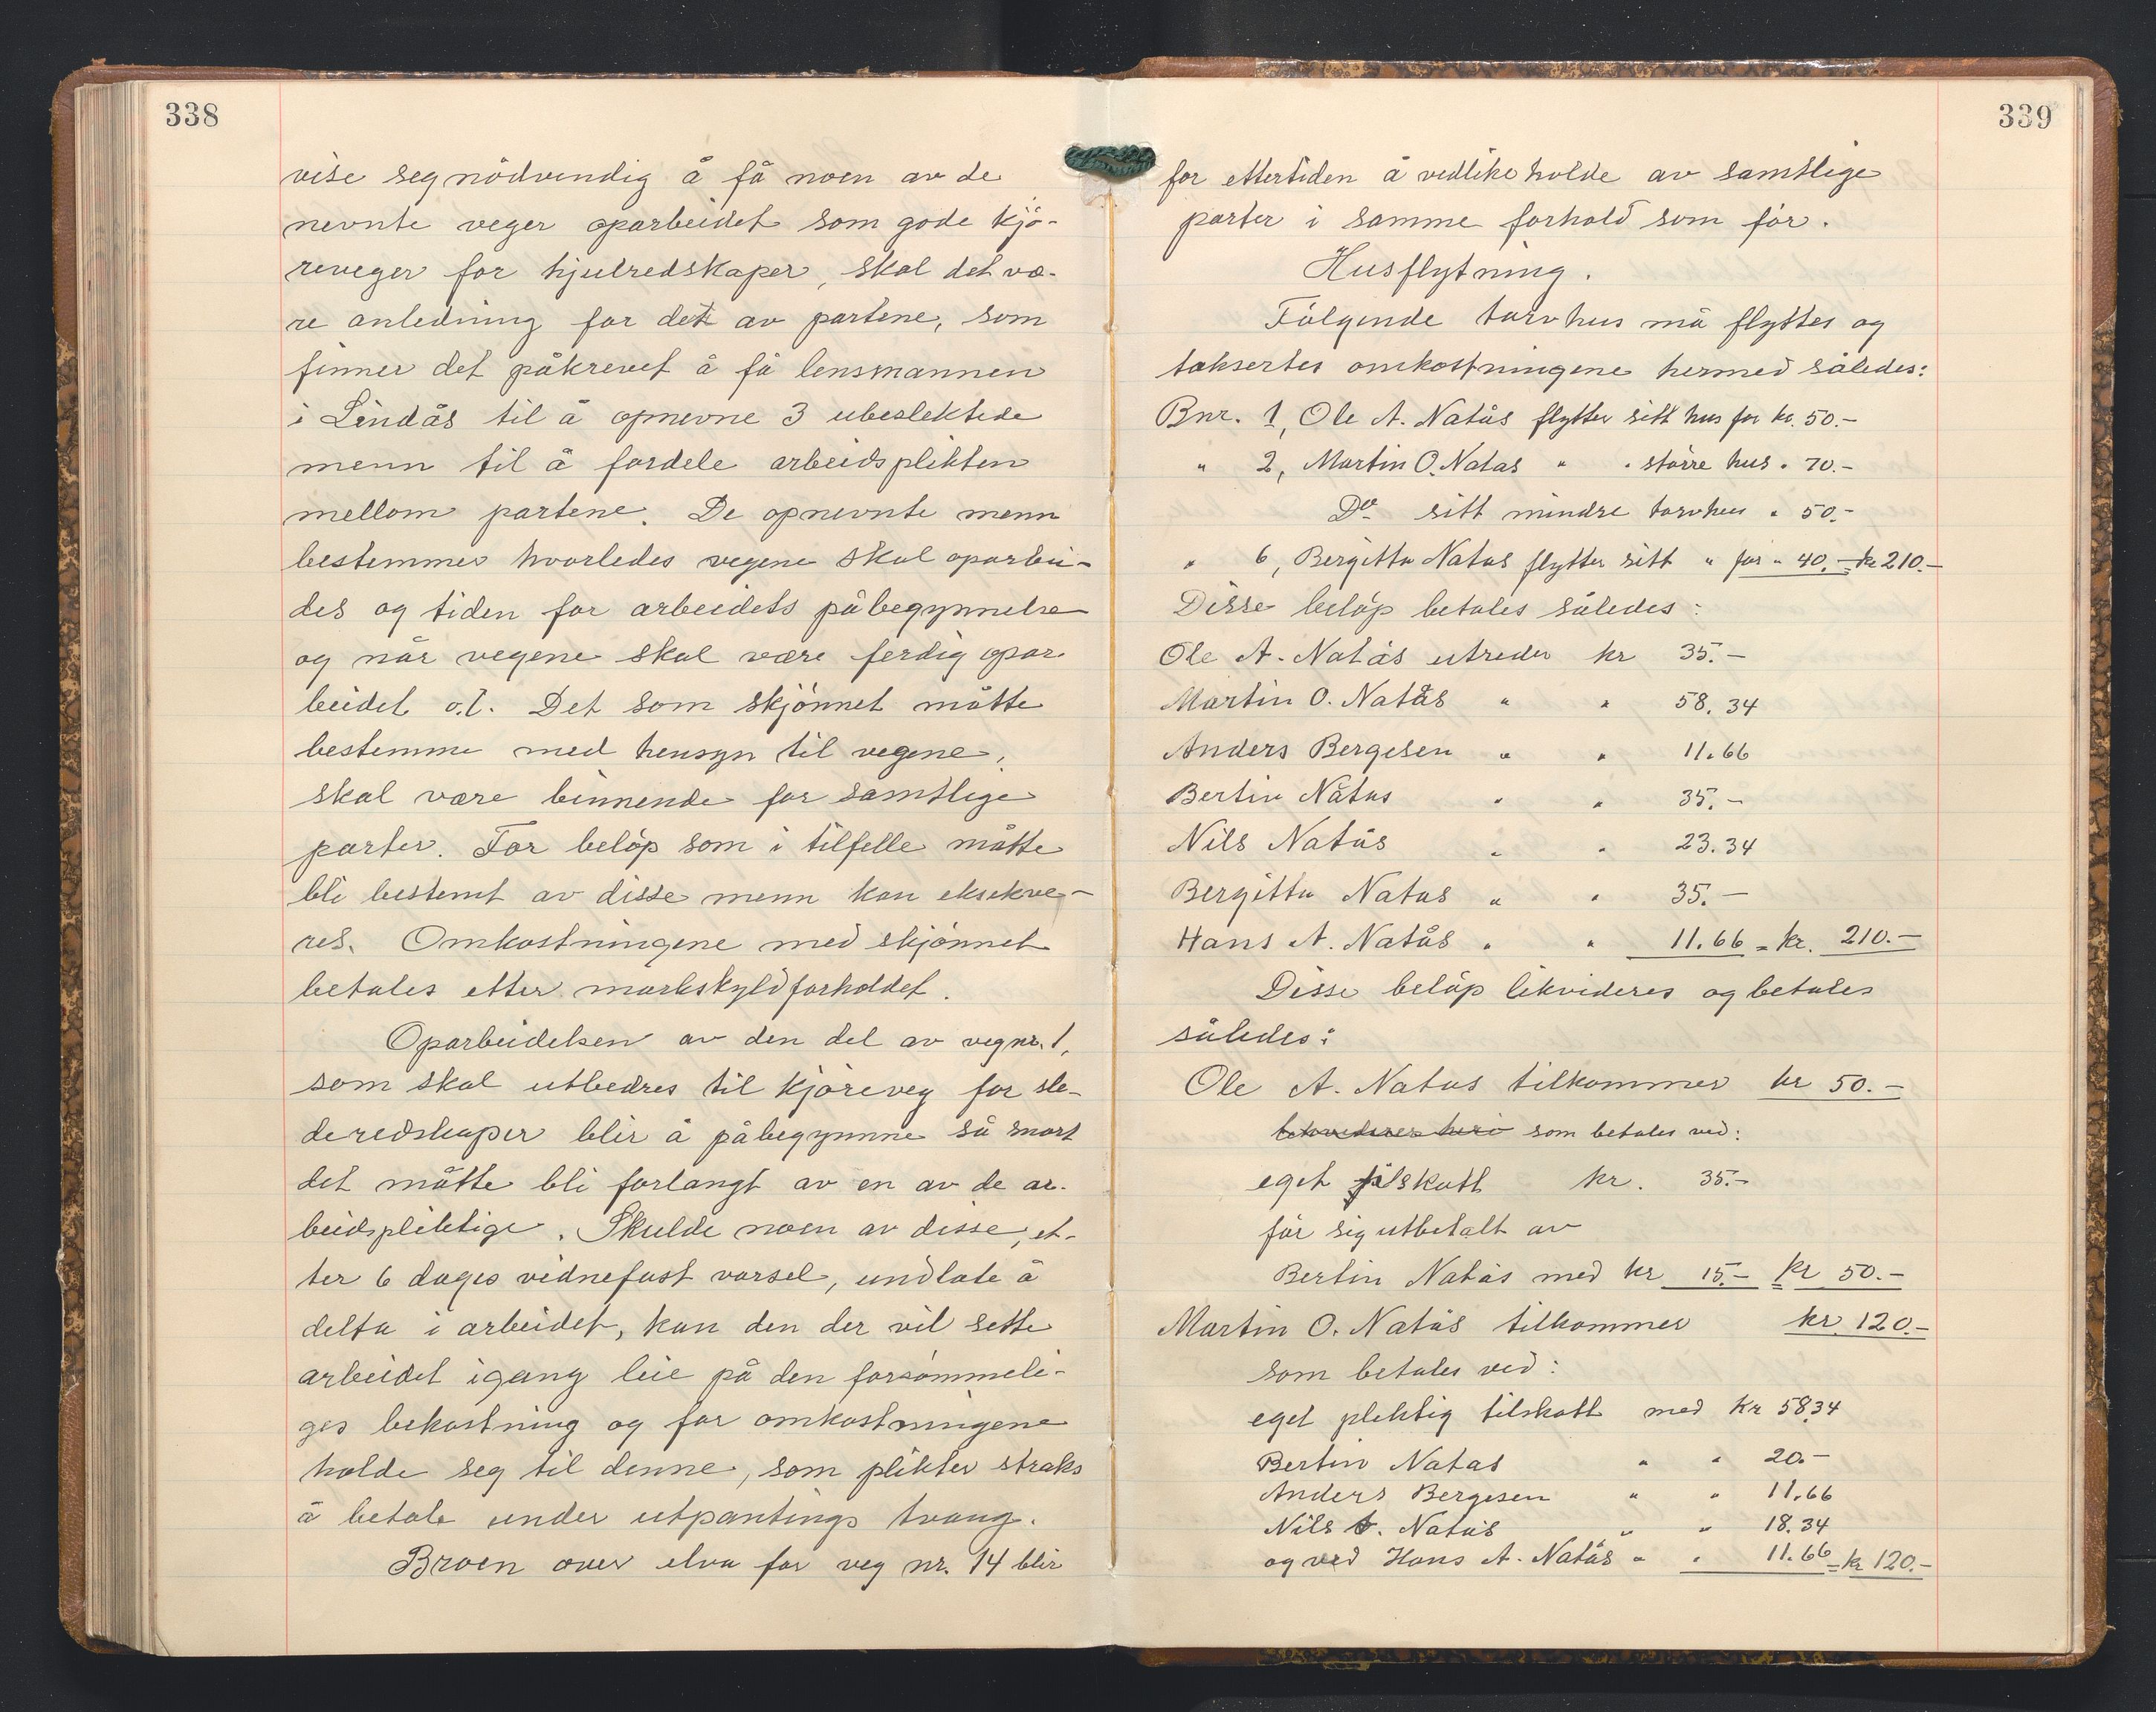 338
vise seg nödvendig å få noen av de
nevnte veger oparbeidet som gode kjö-
reveger for hjulredskaper, skal det væ-
re anledning for det av partene, som
finner det påkrevet å få lensmannen
i Lindås til å opnevne 3 ubeslektede
menn til å fordele arbeidsplikten
mellom partene. De opnevnte menn
bestemmer hvorledes vegene skal oparbei-
des og tiden for arbeidets påbegynnelse
og når vegene skal være ferdig opar
beidet o.l. Det som skjönnet måtte
bestemme med hensyn til vegene,
skal være binnende for samtlige
parter. For belöp som i tilfelle måtte
bli bestemt av disse menn kan eksekve-
res. Omkostningene med skjönnet
betales etter markskyldforholdet.
Oparbeidelsen av den del av veg nr. 1,
som skal utbedres til kjöreveg for sle-
deredskaper blir å påbegynne så snart
det måtte bli forlangt av en av de ar-
beidspliktige. Skulde noen av disse, et-
ter 6 dages vidnefast varsel, undlate å
delta i arbeidet, kan den der vil sette
arbeidet igang leie på den forsömmeli-
ges bekostning og for omkostningene
holde seg til denne, som plikter straks
å betale under utpantings tvang.
Broen over elva for veg nr. 14 blir
339
for ettertiden å vedlikeholde av samtlige
parter i samme forhold som för.
Husflytning.
Fölgende torvhus må flyttes og
taksertes omkostningene hermed således:
Bnr. 1, Ole A. Natås flytter sitt hus for kr. 50.-
" 2, Martin O. Natås " " större hus " 70.-
Do sitt mindre torvhus " 50.-
" 6, Bergitta Natås flytter sitt " for " 40.- = kr 210.-
Disse belöp betales således:
Ole A. Natås utreder kr 35.-
Martin O. Natås " " 58.34
Anders Bergesen " " 11.66
Bertin Nåtas " " 35.-
Nils Natås " " 23.34
Bergitta Natas " " 35.-
Hans A. Natås " " 11.66 = kr. 210.-
Disse belöp likvideres og betales
således:
Ole A. Natås tilkommer kr 50.-
som betales ved:
eget tilskott kr. 35.-
får sig utbetalt av
Bertin Natås med kr 15.- = kr 50.-
Martin O. Natås tilkommer kr 120.-
som betales ved:
eget pliktig tilskott med kr 58.34
Bertin Natas " " 20.-
Anders Bergesen " " 11.66
Nils A. Natås " " 18.34
og ved Hans A. Natås " " 11.66 = kr 120.-